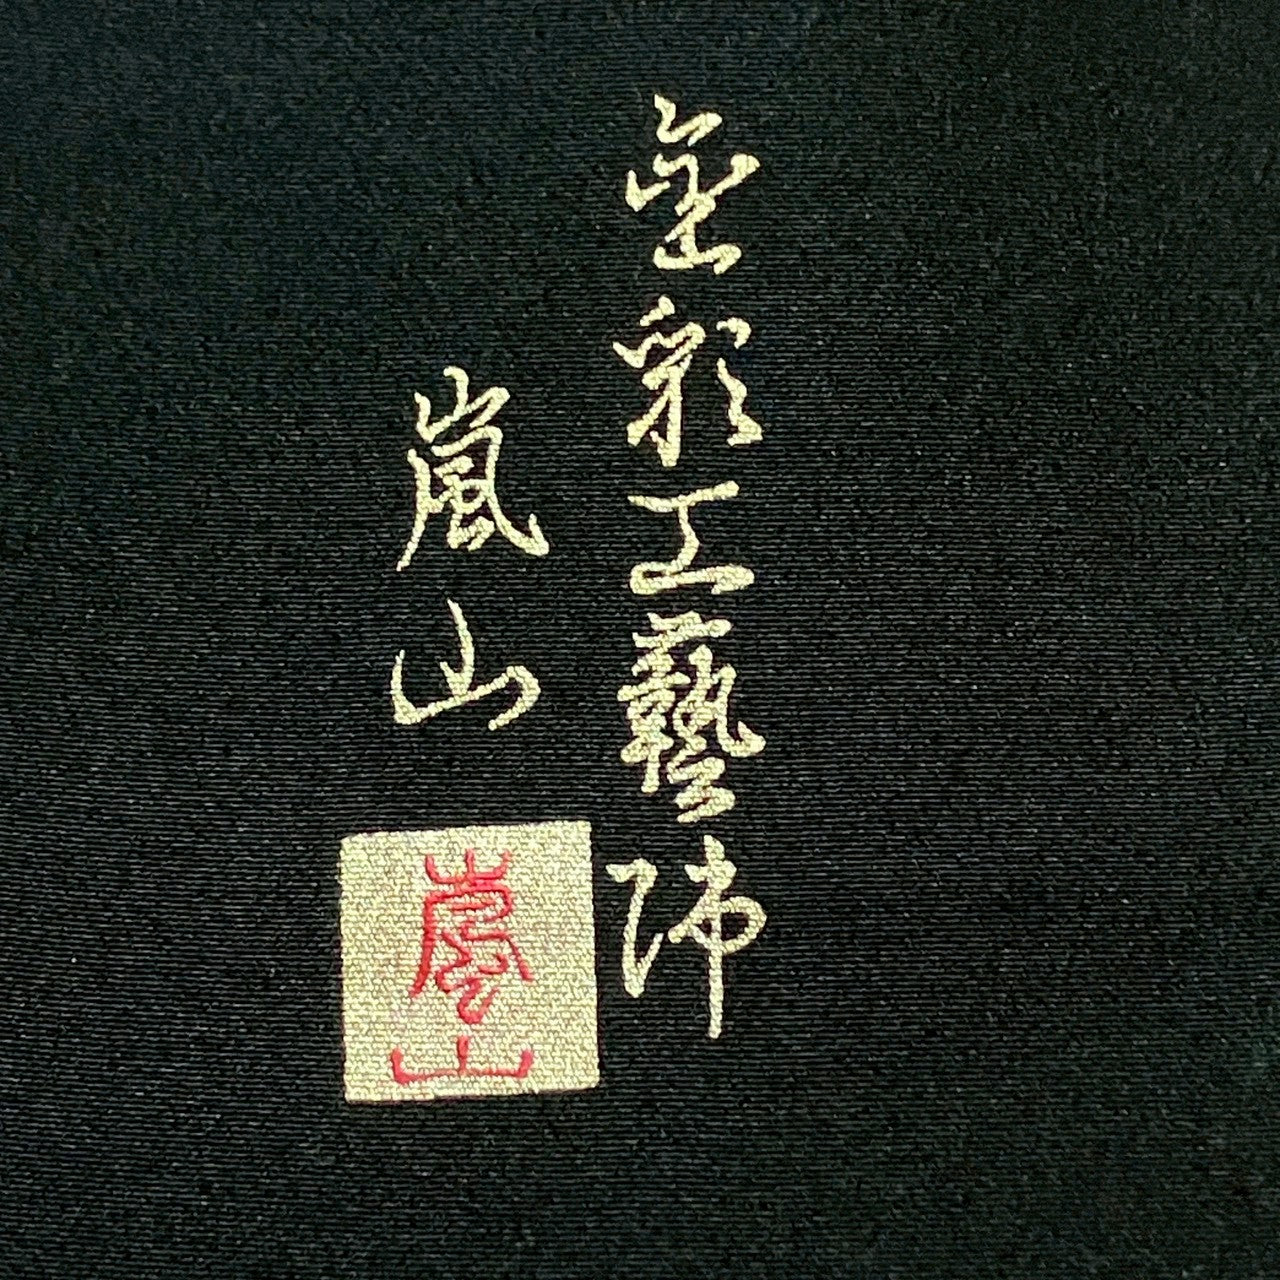 金彩工藝師
嵐山
嵐山